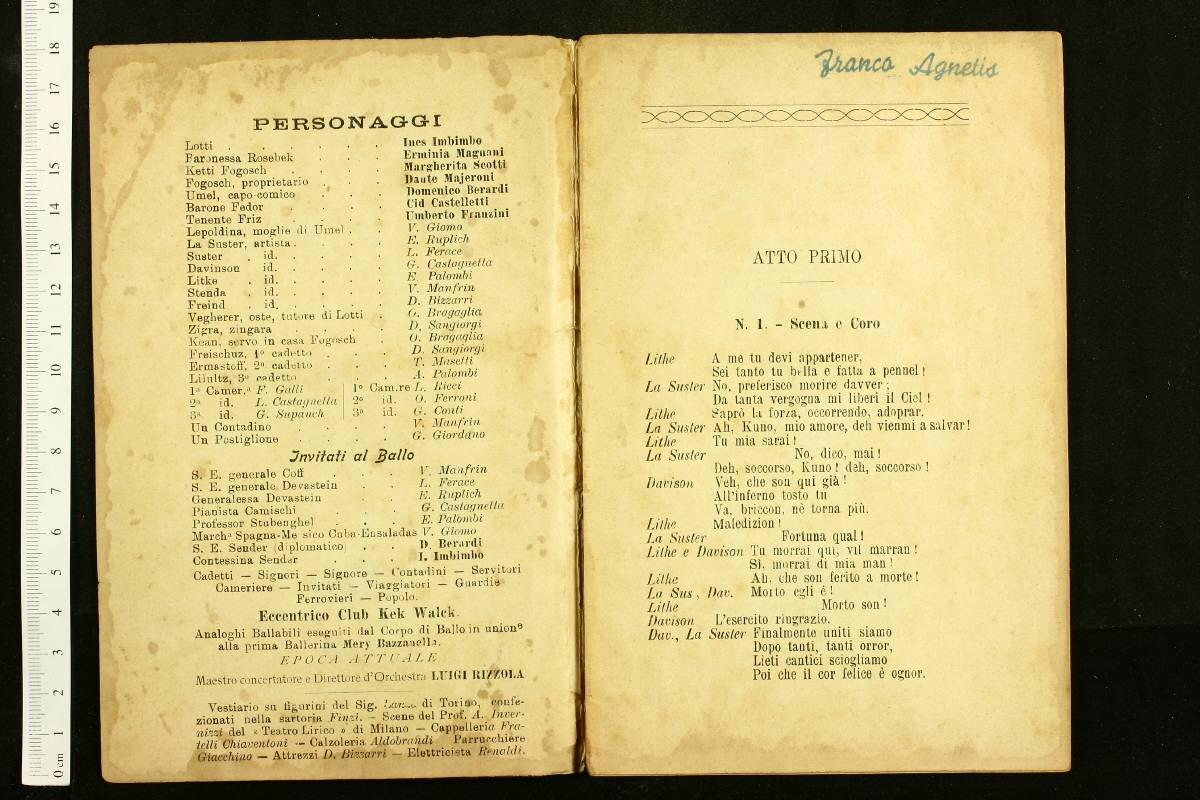 PERSONAGGI
Lotti . . . . . . Ines Imbimbo
Baronessa Rosebek . . . Erminia Magnani
Ketti Fogosch . . . . Margherita Scotti
Fogosch, proprietario . . . Dante Majeroni
Umel, capo-comico . . . Domenico Berardi
Barone Fedor . . . . Cid Castelletti
Tenente Friz . . . . Umberto Franzini
Lepoldina, moglie di Umel . . V. Giomo
La Suster, artista . . . . E. Ruplich
Suster . id. . . . . L. Ferace
Davinson id. . . . . G. Castagnetta
Litke . id. . . . . E. Palombi
Stenda . id. . . . . V. Manfrin
Freind . id. . . . . D. Bizzarri
Vegherer, oste, tutore di Lotti . O. Bragaglia
Zigra, zingara . . . . D. Sangiorgi
Kean, servo in casa Fogosch . O. Bragaglia
Freischuz, 1º cadetto . . . D. Sangiorgi
Ermastoff, 2º cadetto . . . T. Masetti
Lilultz, 3º cadetto . . . A. Palombi
1ª Camer.ª F. Galli | 1º Cam.re L. Ricci
2ª id. L. Castagnella | 2º id. O. Ferroni
3ª id. G. Supanch | 3º id. G. Conti
Un Contadino . . . . V. Manfrin
Un Postiglione . . . . G. Giordano
Invitati al Ballo
S. E. generale Coff . . . V. Manfrin
S. E. generale Devastein . . L. Ferace
Generalessa Devastein . . . E. Ruplich
Pianista Camischi . . . G. Castagnetta
Professor Stubenghel . . . E. Palombi
March.ª Spagna-Me sico Cuba-Ensaladas V. Giomo
S. E. Sender (diplomatico) . . D. Berardi
Contessina Sender . . . I. Imbimbo
Cadetti — Signori — Signore — Contadini — Servitori
Cameriere — Invitati — Viaggiatori — Guardie
Ferrovieri — Popolo.
Eccentrico Club Kek Walck.
Analoghi Ballabili eseguiti dal Corpo di Ballo in unione
alla prima Ballerina Mery Bazzanella.
EPOCA ATTUALE
Maestro concertatore e Direttore d'Orchestra LUIGI RIZZOLA
Vestiario su figurini del Sig. di Torino, confe-
zionati nella sartoria Finzi. — Scene del Prof. A. Inver-
nizzi del « Teatro Lirico » di Milano — Cappelleria Fra-
telli Chiaventoni — Calzoleria Aldobrandi Parrucchiere
Giacchino — Attrezzi D. Bizzarri — Elettricista Renaldi.
Franco Agnetis
ATTO PRIMO
N. 1. - Scena e Coro
Lithe A me tu devi appartener,
Sei tanto tu bella e fatta a pennel!
La Suster No, preferisco morire davver;
Da tanta vergogna mi liberi il Ciel!
Lithe Saprò la forza, occorrendo, adoprar.
La Suster Ah, Kuno, mio amore, deh vienmi a salvar!
Lithe Tu mia sarai!
La Suster No, dico, mai!
Deh, soccorso, Kuno! deh, soccorso!
Davison Veh, che son qui già!
All'inferno tosto tu
Va, briccon, nè torna più.
Lithe Maledizion!
La Suster Fortuna qual!
Lithe e Davison Tu morrai qui, vil marran!
Sì, morrai di mia man!
Lithe Ah, che son ferito a morte!
La Sus, Dav. Morto egli è!
Lithe Morto son!
Davison L'esercito ringrazio.
Dav., La Suster Finalmente uniti siamo
Dopo tanti, tanti orror,
Lieti cantici sciogliamo
Poi che il cor felice è ognor.
19
18
17
16
15
14
13
12
11
10
9
8
7
6
5
4
3
2
1
0 cm